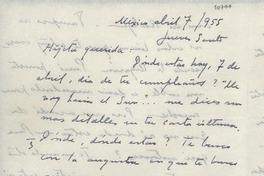 10744
México abril 7/955
Jueves Santo
Hijita querida
Donde estas hoy, 7 de
abril, día de tu cumpleaños? "Me
voy hacia el Sur"... me dices sin
mas detalles en tu carta ultima.
¿Donde, donde estas? Te busco
con la angustia en que te busco